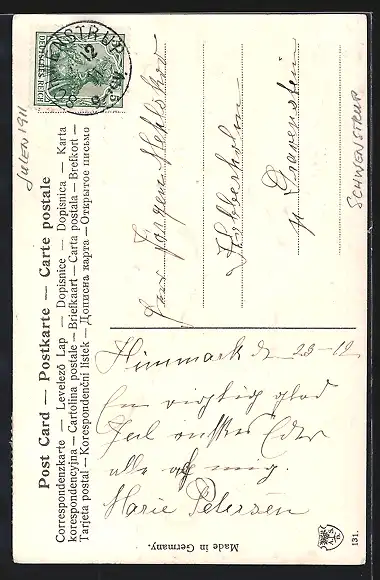 JULEN 1911
SCHWENSTRUP
DEUTSCHES REICH
Post Card — Postkarte — Carte postale
Correspondenzkarte — Levelező Lap — Dopisnice — Dopisnica — Karta
korespondencyjna — Cartolina postale — Briefkaart — Carta postala — Brefkort —
Tarjeta postal — Korespondenční lístek — Дописна карта — Открытое письмо
Jørgen
Himmark d 23-12
En rigtig glad
Jul ønskes Eder
alle af mig.
Marie Petersen
Made in Germany.
131.